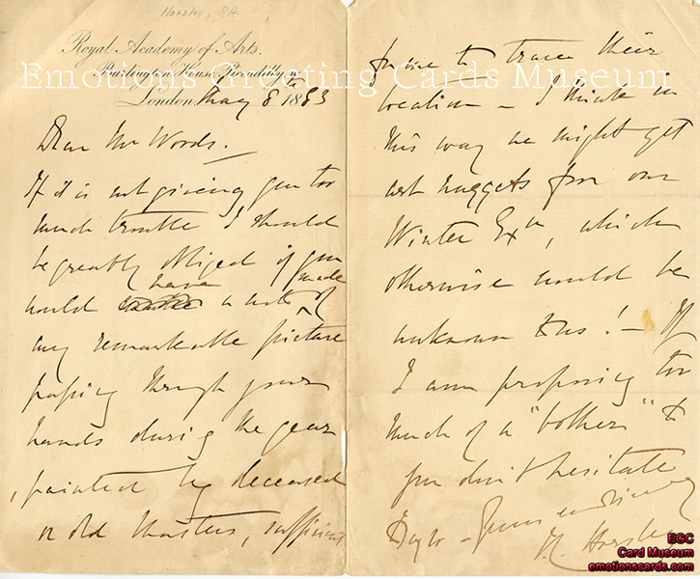 Horsley, R.A.
Royal Academy of Arts.
Burlington House, Piccadilly.
London, May 8th 1883
Dear Mr Woods.
If it is not giving you too
much trouble I should
be greatly obliged if you
would have a note made of
any remarkable picture
passing through your
hands during the year
, painted by deceased
or old Masters, sufficient
for me to trace their
location — I think in
this way we might get
art nuggets for our
Winter Exn, which
otherwise would be
unknown to us! — If
I am proposing too
much of a "bother" to
you don't hesitate
to say so — Yours
Horsley
Emotions Greeting Cards Museum
EGC
Card Museum
emotionscards.com